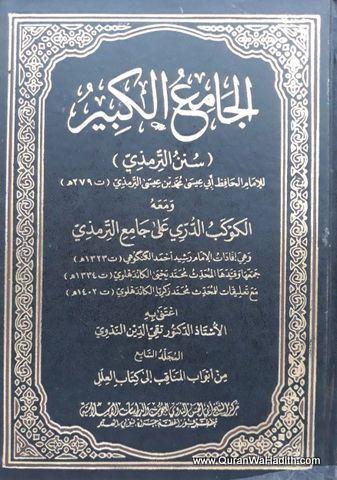 الجامع الكبير
(سنن الترمذي)
للإمام الحافظ أبي عيسى محمد بن عيسى الترمذي (ت ٢٧٩هـ)
ومعه
الكوكب الدري على جامع الترمذي
وهي إفادات الإمام رشيد أحمد الكنكوهي (ت ١٣٢٣هـ)
جمعها وقيدها المحدث محمد يحيى الكاندهلوي (ت ١٣٣٤هـ)
مع تعليقات للمحدث محمد زكريا الكاندهلوي (ت ١٤٠٢هـ)
اعتنى به
الأستاذ الدكتور تقي الدين الندوي
المجلد السابع
من أبواب المناقب إلى كتاب العلل
مركز الشيخ أبي الحسن الندوي للبحوث والدراسات الإسلامية
www.QuranWaHadith.com